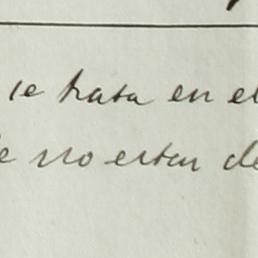 se trata en el
e no estan de